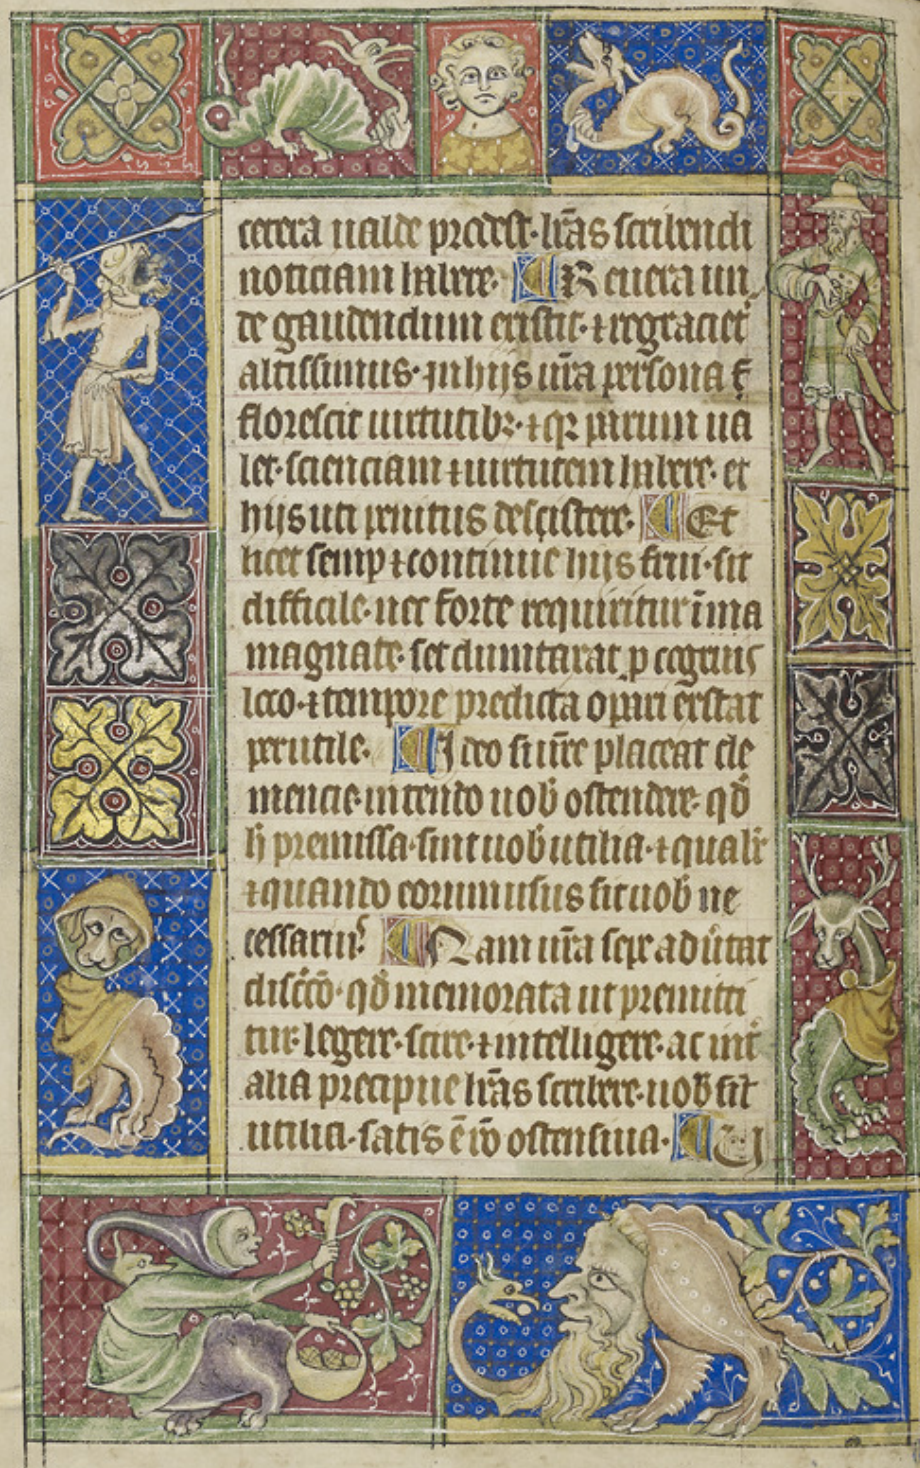 cetera ualde prodest · lr̄as scribendi
noticiam habere · Reuera un
de gaudendum existit · ⁊ regraciet᷑
altissimus · in hijs ur̄a persona
florescit uirtutibꝫ · ⁊ parum ua
let · scienciam ⁊ uirtutem habere · et
hijs uti penitus desistere · Et
licet semp ⁊ continue hijs frui · sit
difficile · nec forte requiritur ī ma
magnate · set dumtaxat ꝑ congruis
loco · ⁊ tempore predicta opari exstat
perutile · Ideo si ur̄e placeat cle
mencie · intendo uob̄ ostendere · qd̄
h̄ premissa · sint uob̄ utilia · ⁊ qualr̄
⁊ quando eorum usus sit uob̄ ne
cessarius Nam ur̄a sepe aduertat
discr̄co · qd̄ memorata ut premitti
tur · legere · scire · ⁊ intelligere · ac int̄
alia precipue lr̄as scribere · uob̄ sit
utilia · satis ē ostensiua · U